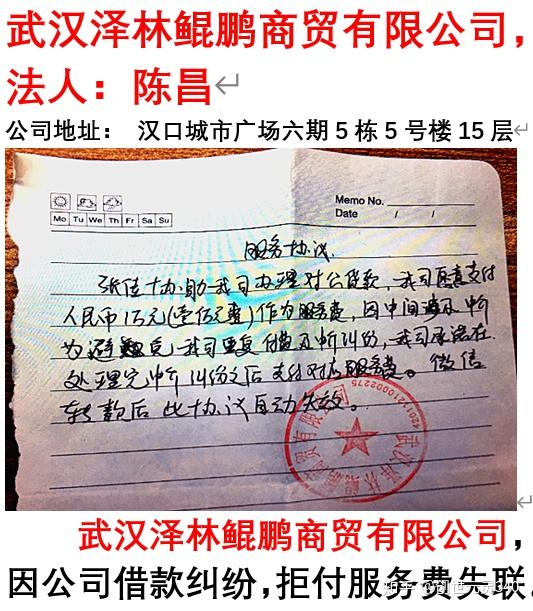 武汉泽林鲲鹏商贸有限公司，
法人：陈昌
公司地址： 汉口城市广场六期5栋5号楼15层
Memo No.
Mo Tu We Th Fr Sa Su
Date / /
服务协议
张佳协助我司办理对公贷款，我司愿意支付
人民币1万元(壹万元整)作为服务费，因中间遇及中介
为避免我司重复付费及中介纠纷，我司承诺在
处理完中介纠纷之后支付对应服务费。微信
转款后此协议自动失效。
武汉泽林鲲鹏商贸有限公司
42011210002275
武汉泽林鲲鹏商贸有限公司，
因公司借款纠纷,拒付服务费失联。